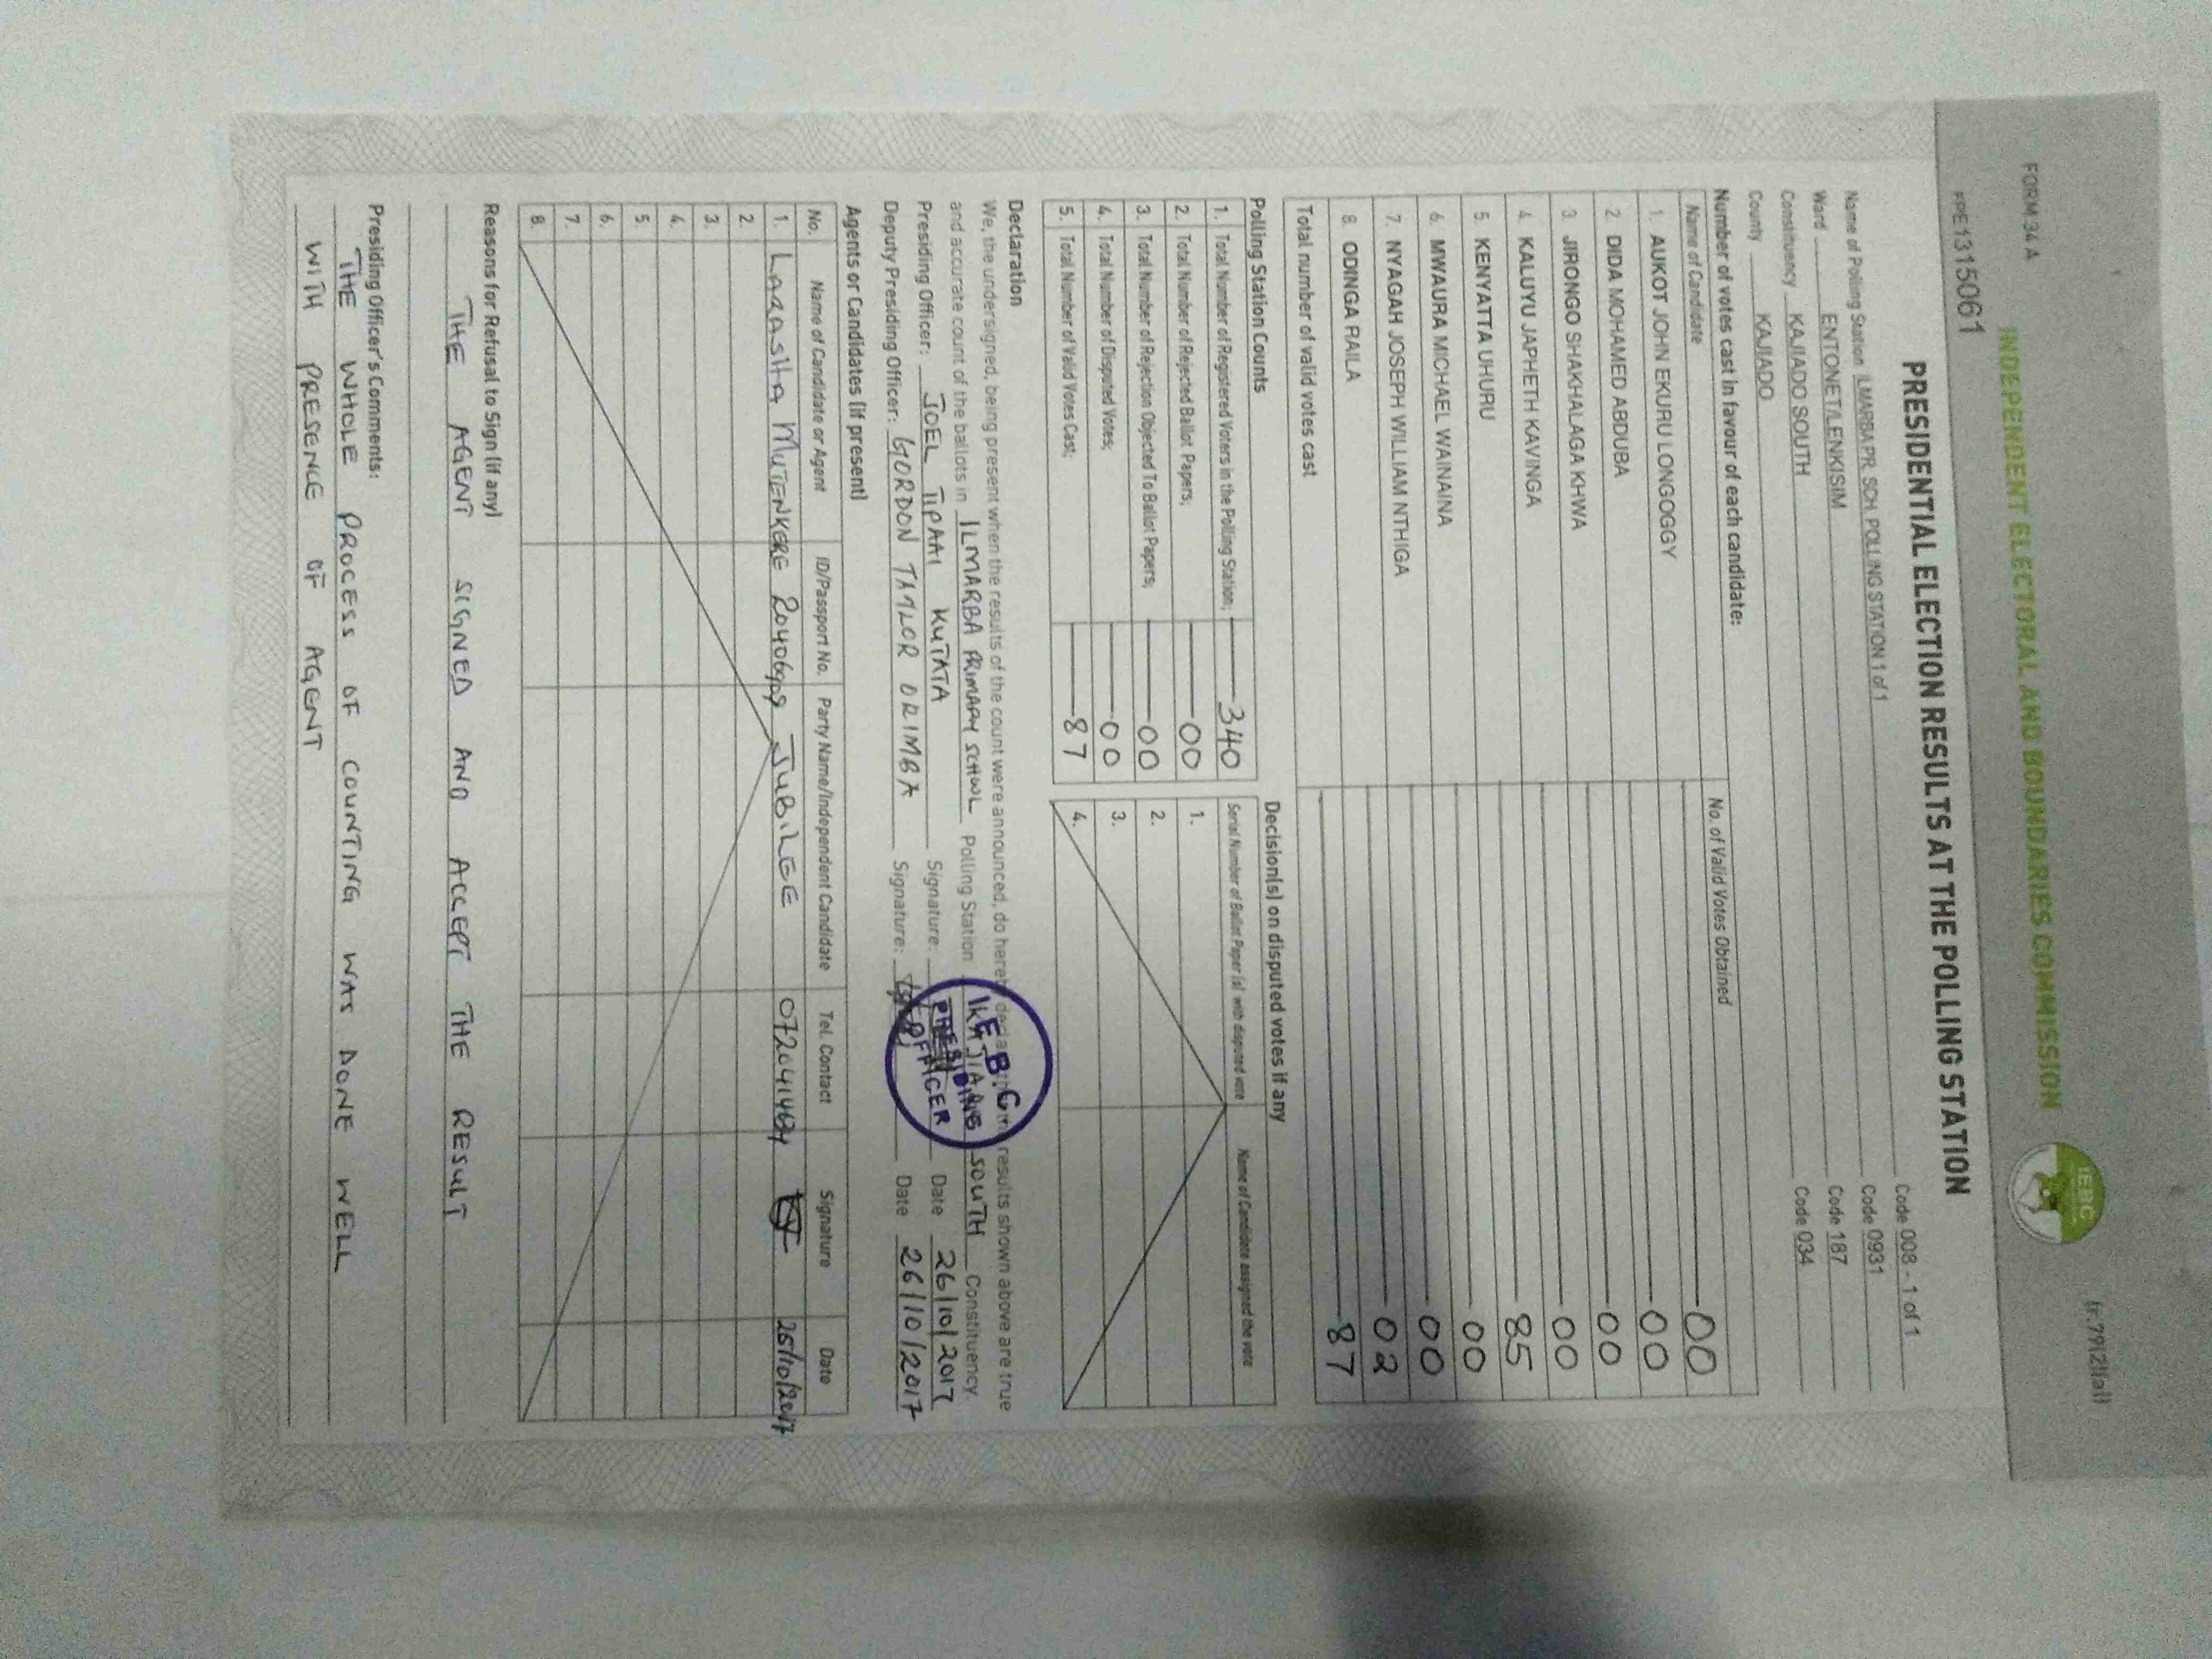 FORM 34 A
(r.79(2)(a))
INDEPENDENT ELECTORAL AND BOUNDARIES COMMISSION
IEBC
PRE1315061
PRESIDENTIAL ELECTION RESULTS AT THE POLLING STATION
Name of Polling Station ILMARBA PR. SCH. POLLING STATION 1 of 1 Code 008 - 1 of 1
Ward ENTONET/LENKISIM Code 0931
Constituency KAJIADO SOUTH Code 187
County KAJIADO Code 034
Number of votes cast in favour of each candidate:
Name of Candidate No. of Valid Votes Obtained
1. AUKOT JOHN EKURU LONGOGGY 00
2. DIDA MOHAMED ABDUBA 00
3. JIRONGO SHAKHALAGA KHWA 00
4. KALUYU JAPHETH KAVINGA 00
5. KENYATTA UHURU 85
6. MWAURA MICHAEL WAINAINA 00
7. NYAGAH JOSEPH WILLIAM NTHIGA 00
8. ODINGA RAILA 02
Total number of valid votes cast 87
Polling Station Counts
1. Total Number of Registered Voters in the Polling Station; 340
2. Total Number of Rejected Ballot Papers; 00
3. Total Number of Rejection Objected To Ballot Papers; 00
4. Total Number of Disputed Votes; 00
5. Total Number of Valid Votes Cast; 87
Decision(s) on disputed votes if any
Serial Number of Ballot Paper (s) with disputed vote Name of Candidate assigned the vote
1.
2.
3.
4.
Declaration
We, the undersigned, being present when the results of the count were announced, do hereby declare that the results shown above are true
and accurate count of the ballots in ILMARBA PRIMARY SCHOOL Polling Station KAJIADO SOUTH Constituency.
Presiding Officer: JOEL TIPAAI KUTATA Signature: Date 26/10/2017
Deputy Presiding Officer: GORDON TAYLOR ORIMBA Signature: Date 26/10/2017
I.E.B.C
PRESIDING
OFFICER
Agents or Candidates (if present)
No. Name of Candidate or Agent ID/Passport No. Party Name/Independent Candidate Tel. Contact Signature Date
1. MUTENKERE JUBILEE
2.
3.
4.
5.
6.
7.
8.
Reasons for Refusal to Sign (if any)
THE AGENT SIGNED AND ACCEPT THE RESULT
Presiding Officer's Comments:
THE WHOLE PROCESS OF COUNTING WAS DONE WELL
WITH PRESENCE OF AGENT